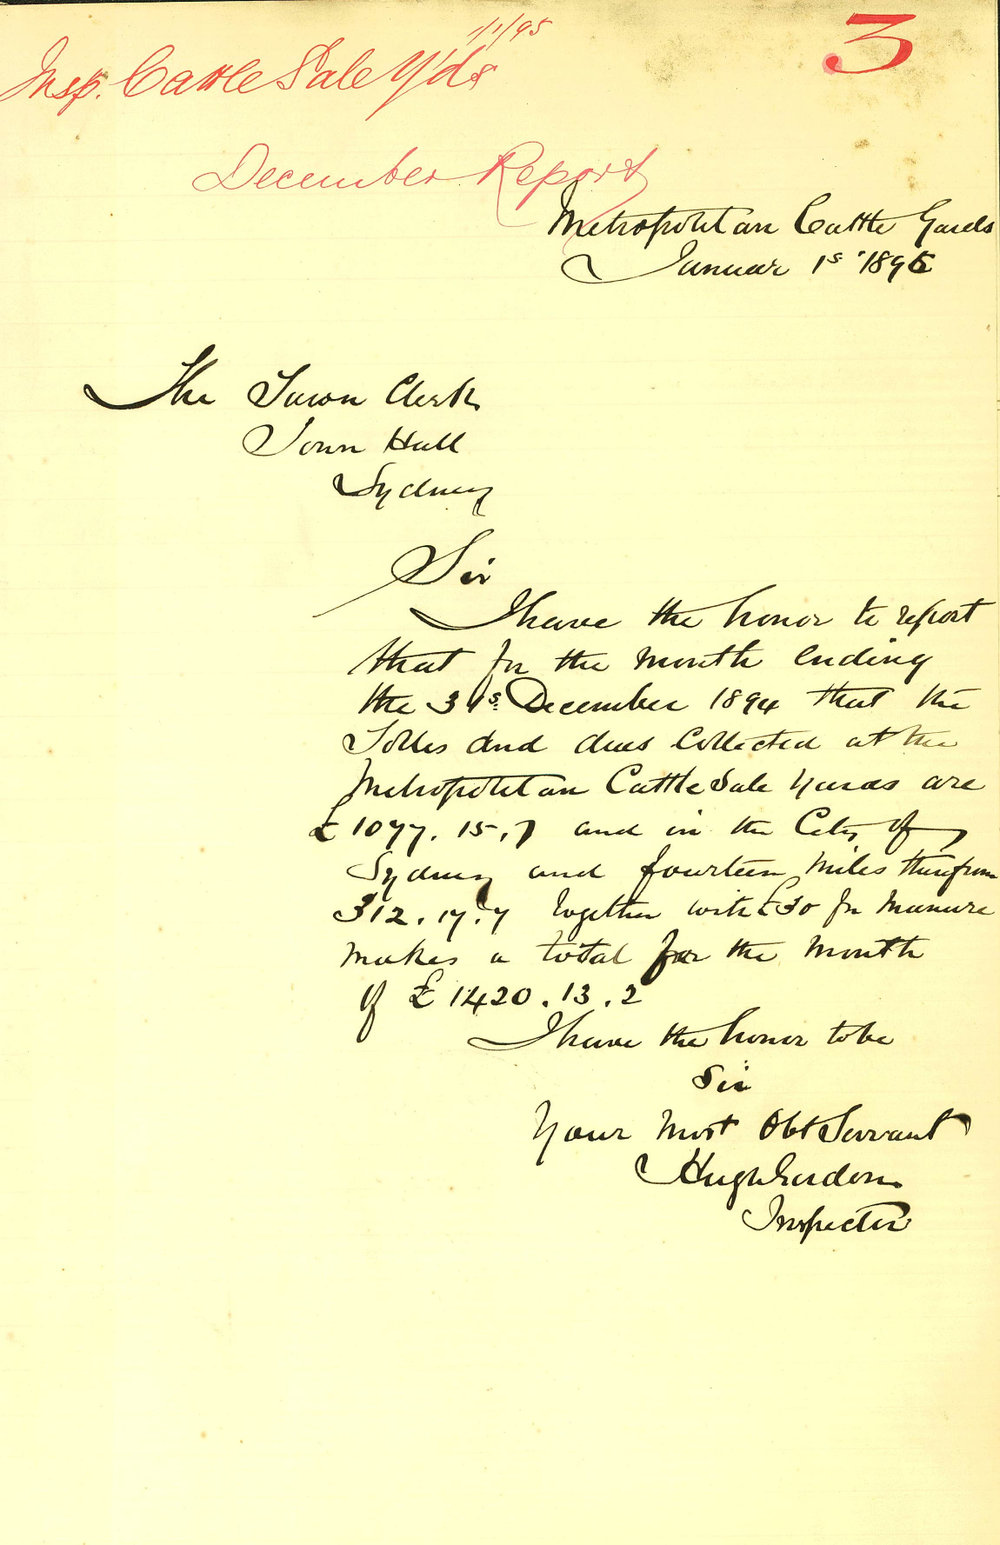 1/1/95
3
Insp. Cattle Sale Yds
December Report
Metropolitan Cattle Yards
Januar 1s 1895
The Town Clerk
Town Hall
Sydney
Sir
I have the honor to report
that for the month ending
the 31s December 1894 that the
Tolles and dues Collected at the
Metropolitan Cattle Sale Yards are
£1077.15.7 and in the City of
Sydney and fourteen miles therefrom
312.17.7 together with £30 for manure
makes a total for the month
of £1420.13.2
I have the honor to be
Sir
Your Most Obt Servant
Hugh Gordon
Inspector